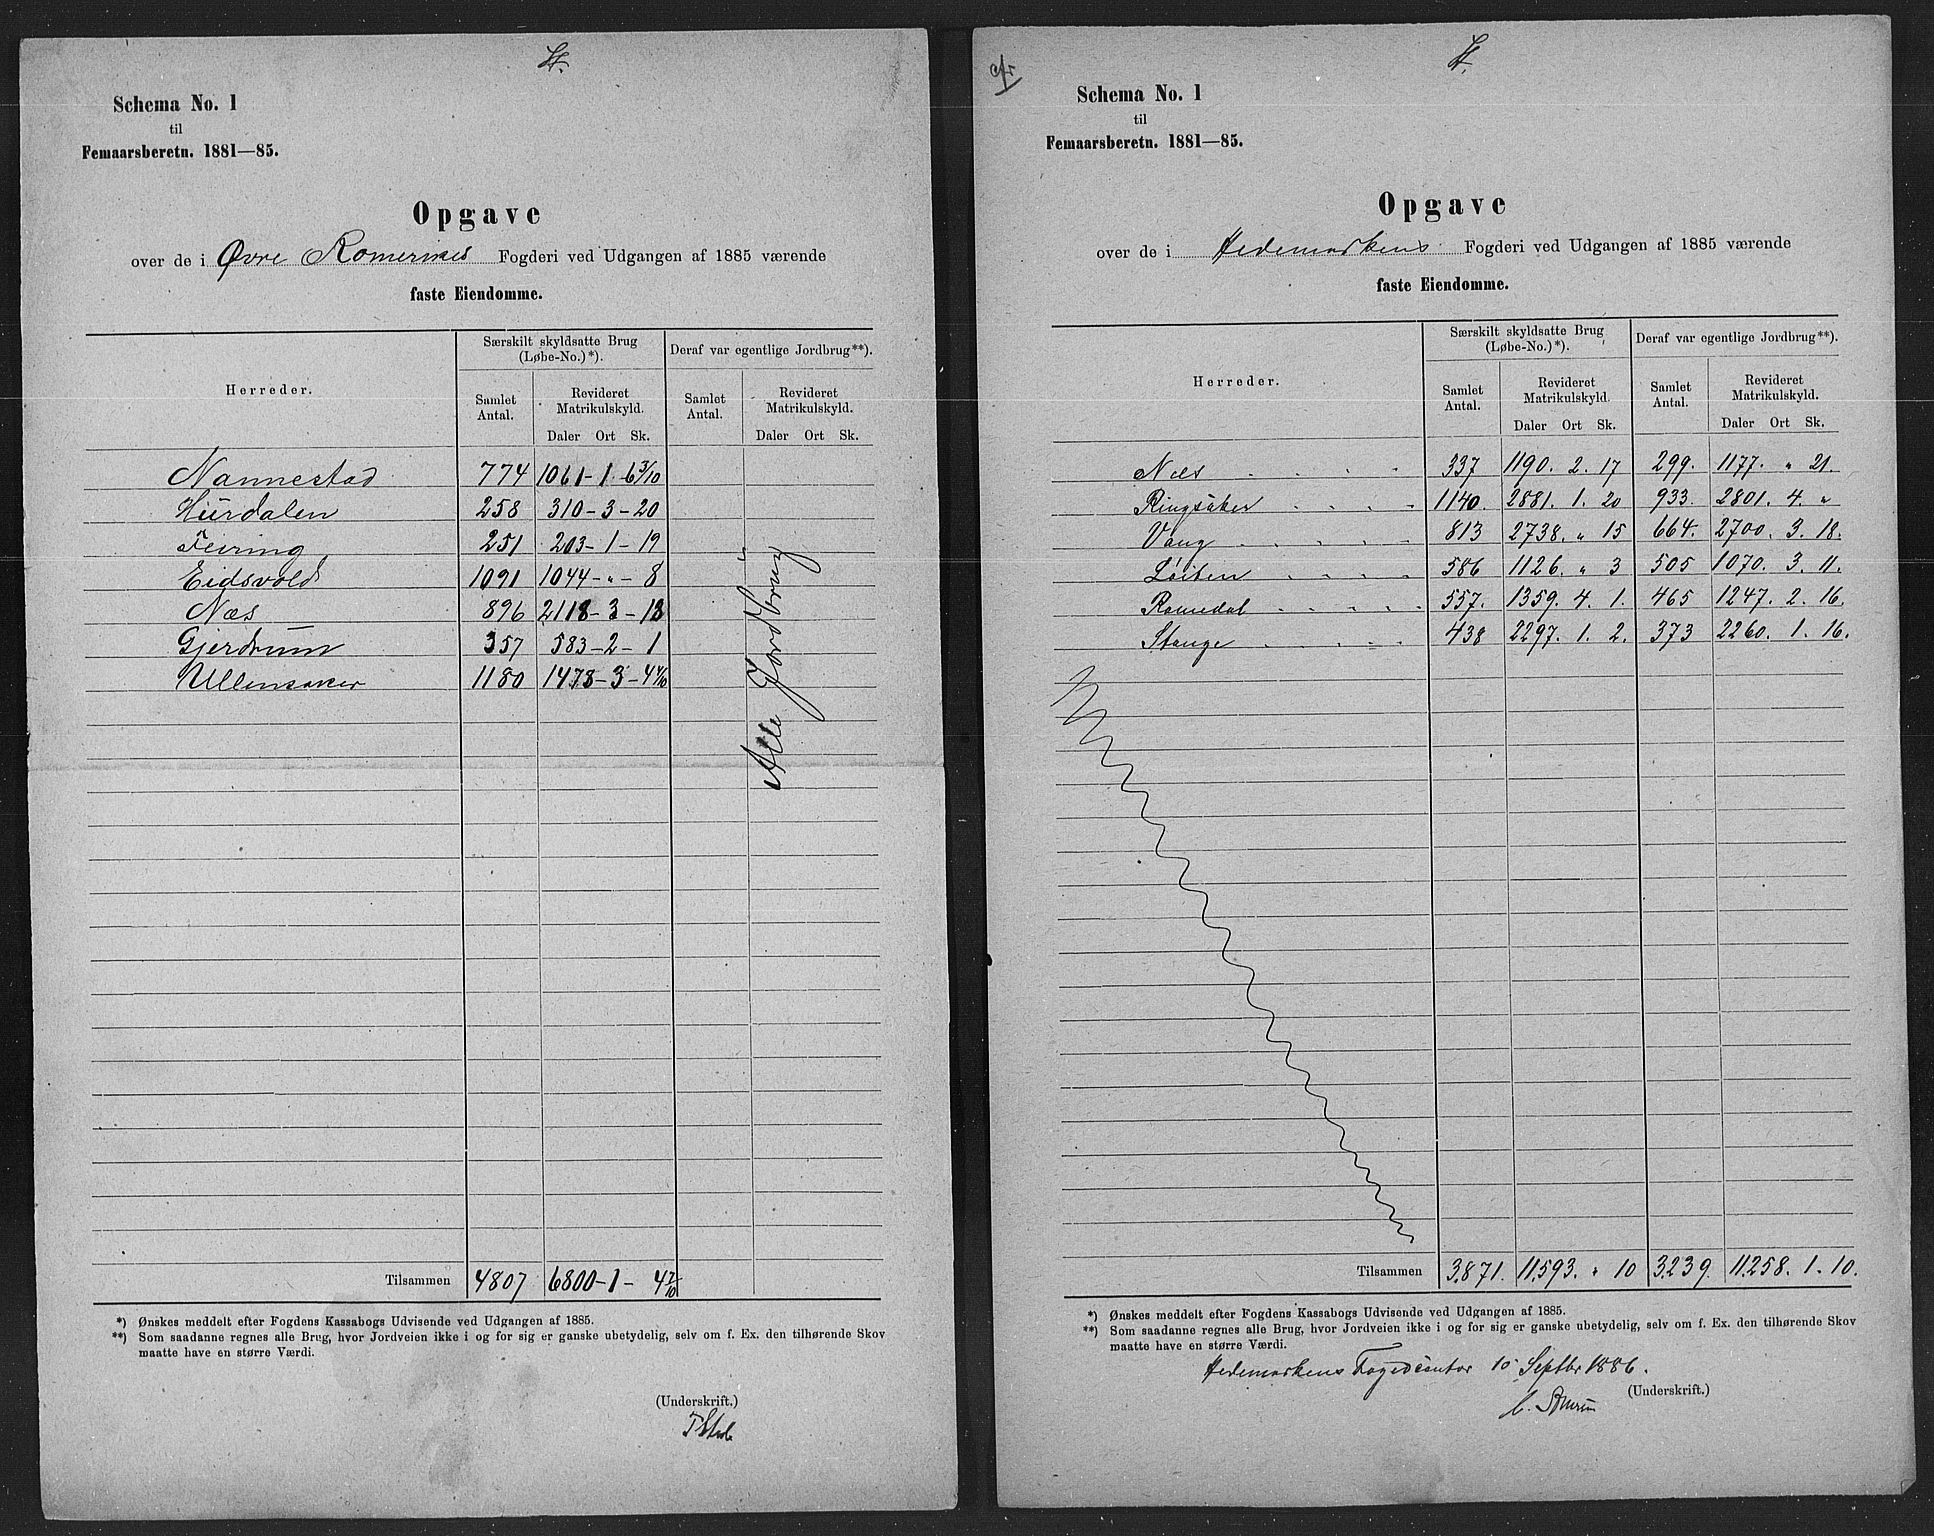 Schema No. 1
til
Femaarsberetn. 1881—85.
Opgave
over de i Øvre Romerikes Fogderi ved Udgangen af 1885 værende
faste Eiendomme.
Herreder. Særskilt skyldsatte Brug (Løbe-No.)*). Deraf var egentlige Jordbrug**).
Samlet Antal. Revideret Matrikulskyld. Samlet Antal. Revideret Matrikulskyld.
Daler Ort Sk. Daler Ort Sk.
Nannestad 774 1061-1. 6 3/10
Hurdalen 258 310-3-20
Feiring 251 203-1-19
Eidsvold 1091 1044-„-8
Næs 896 2118-3-18
Gjerdrum 357 583-2-1
Ullensaker 1180 1478-3-4 4/10
Alle Jordbrug
Tilsammen 4807 6800-1-4 7/10
*) Ønskes meddelt efter Fogdens Kassabogs Udvisende ved Udgangen af 1885.
**) Som saadanne regnes alle Brug, hvor Jordveien ikke i og for sig er ganske ubetydelig, selv om f. Ex. den tilhørende Skov
maatte have en større Værdi.
(Underskrift.)
cfr
Schema No. 1
til
Femaarsberetn. 1881—85.
Opgave
over de i Hedemarkens Fogderi ved Udgangen af 1885 værende
faste Eiendomme.
Herreder. Særskilt skyldsatte Brug (Løbe-No.)*). Deraf var egentlige Jordbrug**).
Samlet Antal. Revideret Matrikulskyld. Samlet Antal. Revideret Matrikulskyld.
Daler Ort Sk. Daler Ort Sk.
Næs . . . . 337 1190. 2. 17 299. 1177. „ 21.
Ringsaker . . . . 1140. 2881. 1. 20 933. 2801. 4. „
Vang . . . . . 813 2738. „ 15 664. 2700. 3. 18.
Løiten . . . . 586 1126. „ 3 505 1070. 3. 11.
Romedal . . . . . 557. 1359. 4. 1. 465 1247. 2. 16.
Stange . . . . 438 2297. 1. 2. 373 2260. 1. 16.
Tilsammen 3.871. 11.593. „ 10 3.239. 11.258. 1. 10.
*) Ønskes meddelt efter Fogdens Kassabogs Udvisende ved Udgangen af 1885.
**) Som saadanne regnes alle Brug, hvor Jordveien ikke i og for sig er ganske ubetydelig, selv om f. Ex. den tilhørende Skov
maatte have en større Værdi.
Hedemarkens Fogedcontor 15 Septbr 1886.
(Underskrift.)